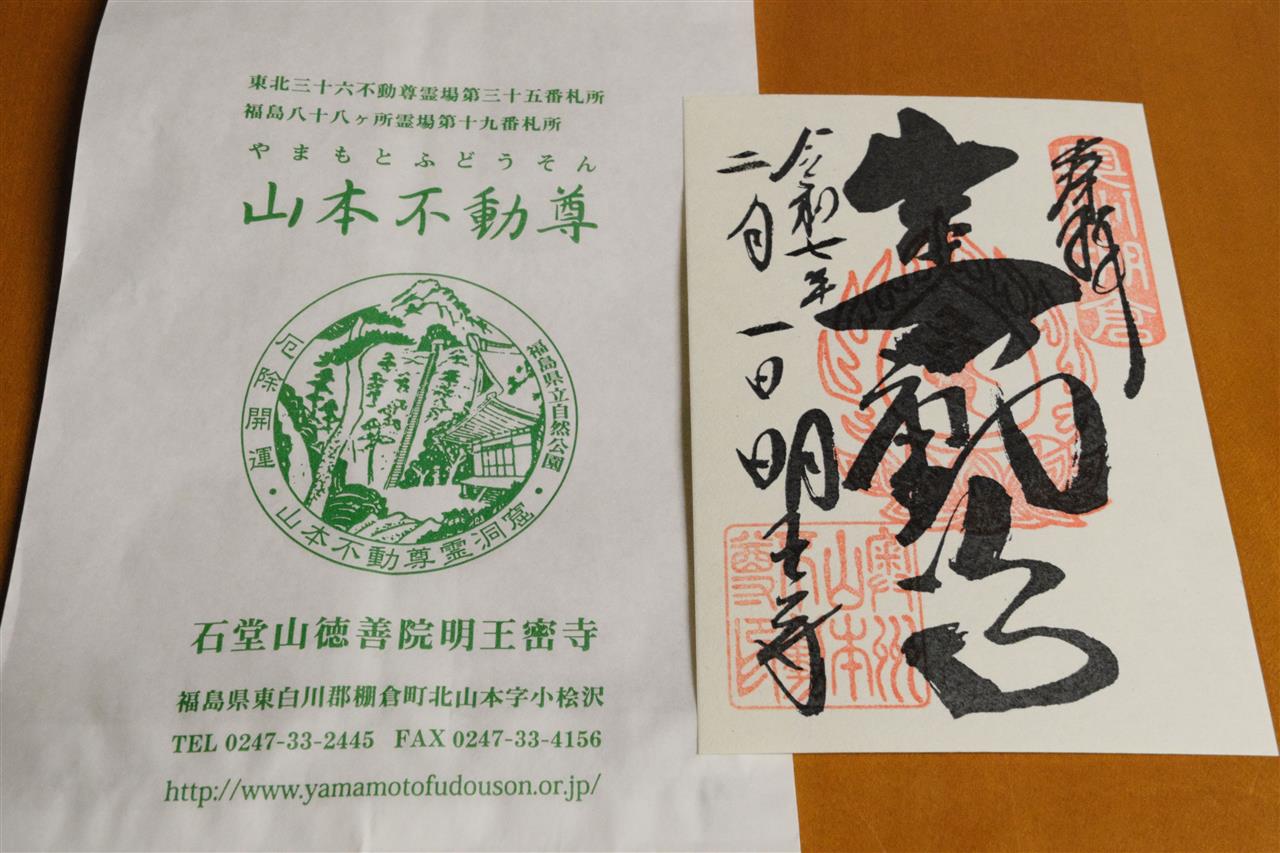 東北三十六不動尊霊場第三十五番札所
福島八十八ヶ所霊場第十九番札所
やまもとふどうそん
山本不動尊
福島県立自然公園
厄除開運・山本不動尊霊洞窟・
石堂山徳善院明王密寺
福島県東白川郡棚倉町北山本字小桧沢
TEL 0247-33-2445 FAX 0247-33-4156
http://www.yamamotofudouson.or.jp/
奉拝
奥州棚倉
令和七年
二月一日
明王寺
奥州
山本